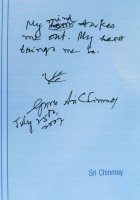 My mind takes
me out. My heart
brings me in.
Sri Chinmoy
July 25th
2007
Sri Chinmoy